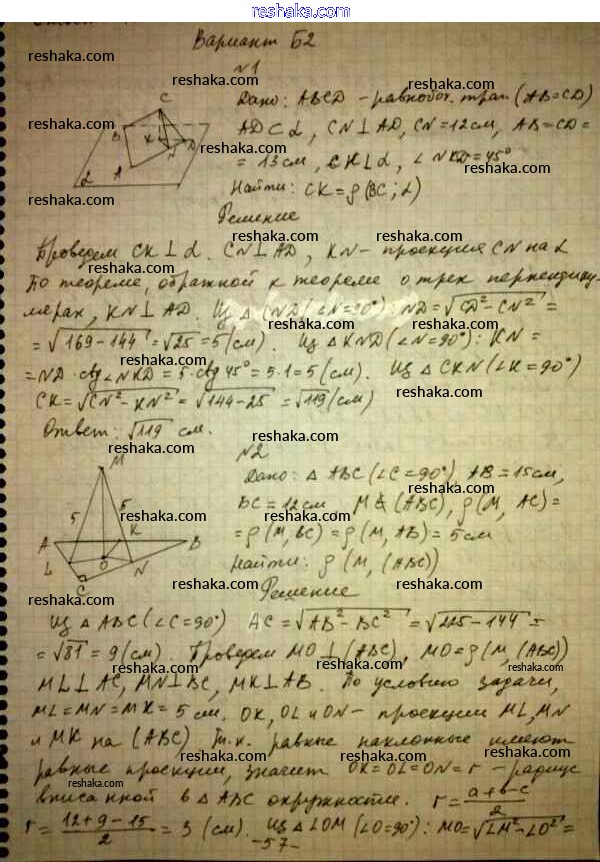 reshaka.com
Вариант Б2
№1
Дано: ABCD – равнобот. трап (AB=CD)
AD⊂α, CN⊥AD, CN=12см, AB=CD=
=13см, CK⊥α, ∠NKD=45°
Найти: CK=ρ(BC;α)
Решение
C
B
K
D
N
A
α
Проведем CK⊥α. CN⊥AD, KN – проекция CN на α
По теореме, обратной к теореме о трех перпендику-
лярах, KN⊥AD. Из △CND(∠N=90°): ND=√CD²-CN²=
=√169-144=√25=5(см). Из △KND(∠N=90°): KN=
=ND·ctg∠NKD=5·ctg45°=5·1=5(см). Из △CKN(∠K=90°)
CK=√CN²-KN²=√144-25=√119(см)
Ответ: √119 см.
№2
Дано: △ABC(∠C=90°), AB=15см,
BC=12см M∉(ABC), ρ(M, AC)=
=ρ(M,BC)=ρ(M,AB)=5см
Найти: ρ(M,(ABC))
Решение
M
5
5
K
A
B
L
O
N
C
Из △ABC(∠C=90°) AC=√AB²-BC²=√225-144=
=√81=9(см). Проведем MO⊥(ABC), MO=ρ(M,(ABC))
ML⊥AC, MN⊥BC, MK⊥AB. По условию задачи,
ML=MN=MK=5см. OK, OL и ON – проекции ML, MN
и MK на (ABC). Т.к. равные наклонные имеют
равные проекции, значит OK=OL=ON=r – радиус
вписанной в △ABC окружности. r=a+b-c/2
r=12+9-15/2=3(см). Из △LOM(∠O=90°): MO=√LM²-LO²=
-57-
reshaka.com